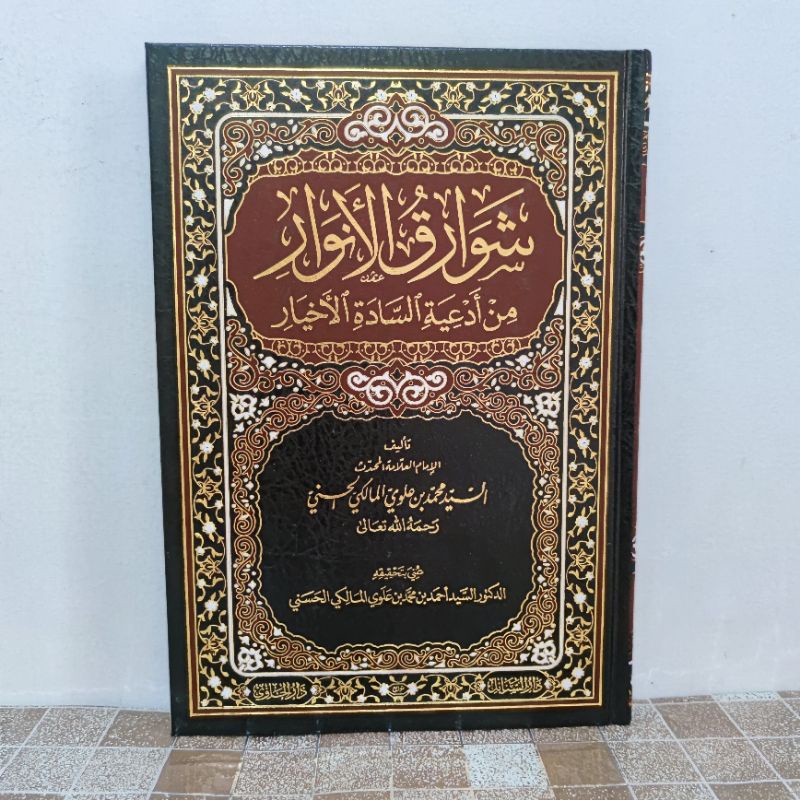 شَوَارِقُ الأَنْوَارِ
مِنْ أَدْعِيَةِ ٱلسَّادَةِ ٱلأَخْيَارِ
تأليف
الإمام العلامة المحدث
السيد محمد بن علوي المالكي الحسني
رحمه الله تعالى
عني بتحقيقه
الدكتور السيد أحمد بن محمد بن علوي المالكي الحسني
دار السنابل
دار الحاوي